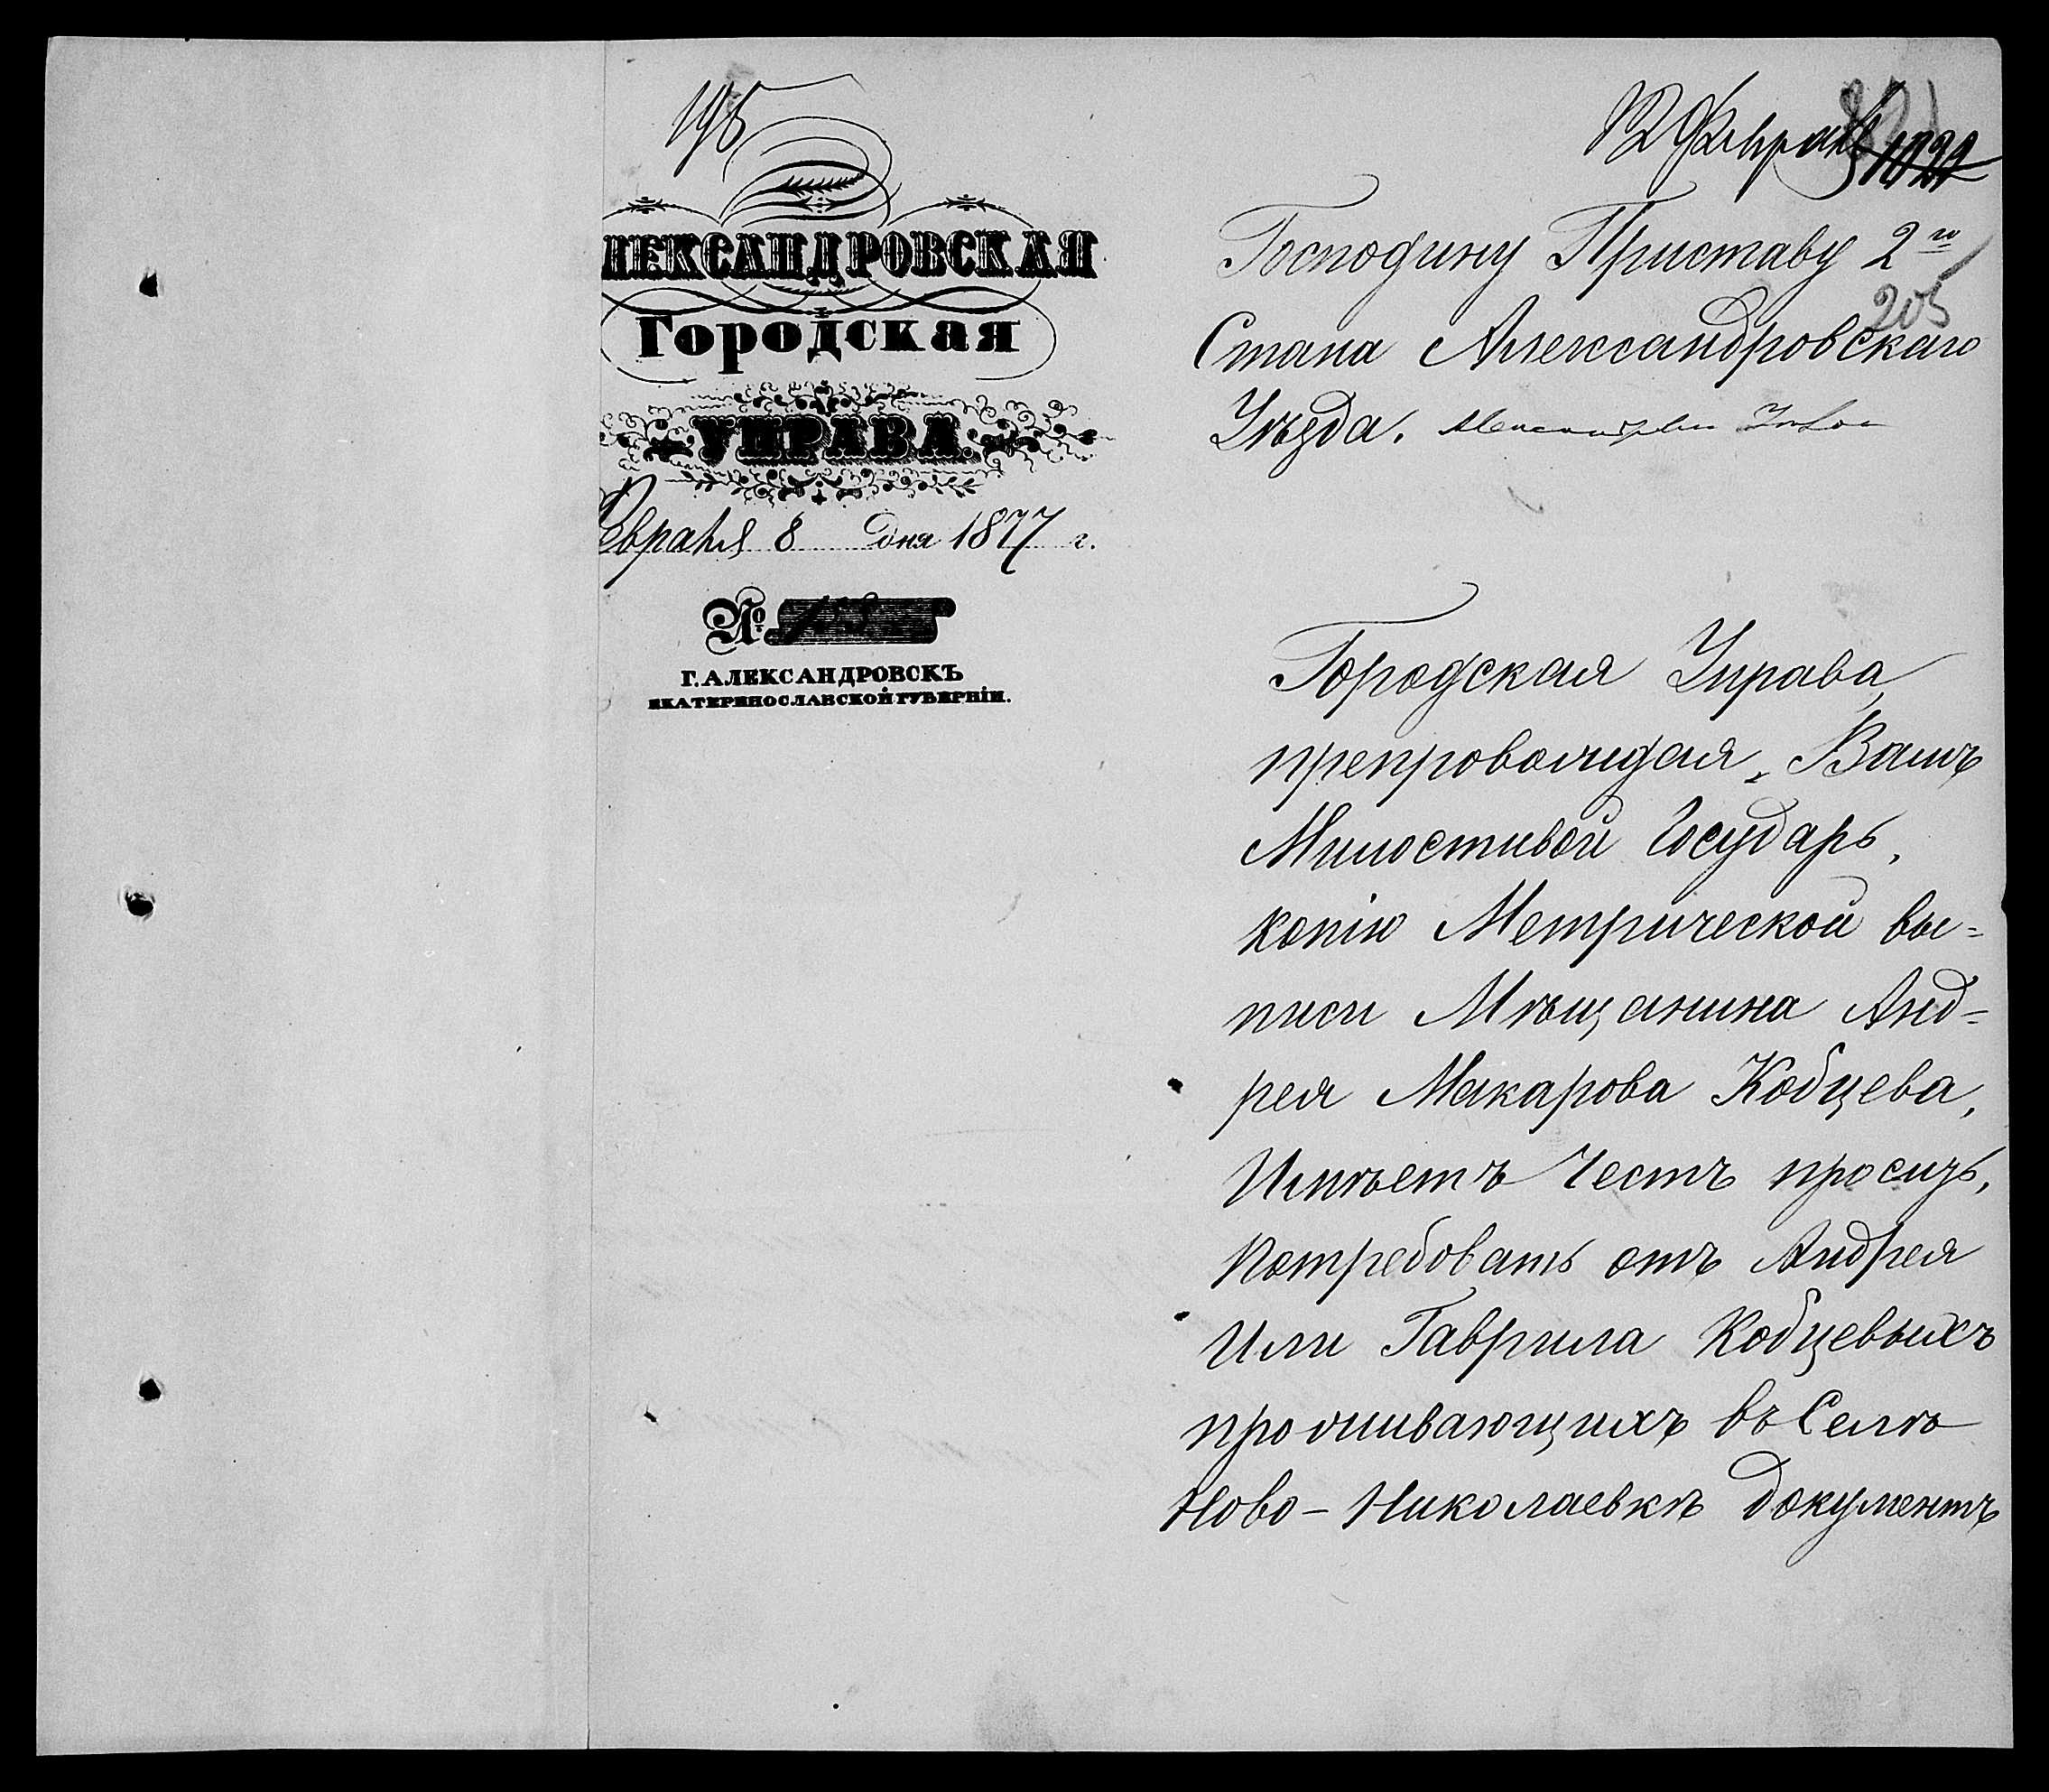 195
лександровская
Городская
Управа.
евраля 8 дня 1877 г.
№
Г. Александровскъ
Екатеринославской губерніи.
12 Февраля
205
Господину Приставу 2го
Стана Александровскаго
Уѣзда.
Городская Управа,
препровождая, Вамъ
Милостивой Государь,
копію Метрической вы=
писи Мѣщанина Анд-
рея Макарова Кобцева,
Имѣетъ Честь просить,
Потребовать отъ Андрея
Или Гаврила Кобцевыхъ
проживающихъ въ Селѣ
Ново-Николаевкѣ документъ